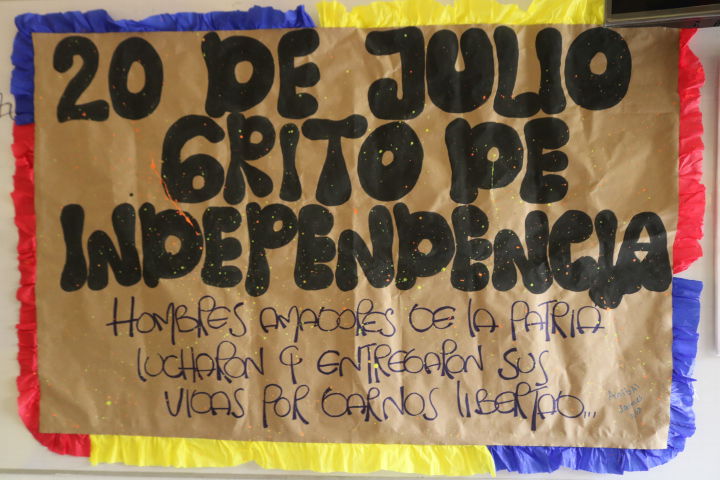 20 DE JULIO
GRITO DE
INDEPENDENCIA
HOMBRES AMADORES DE LA PATRIA
LUCHARON Y ENTREGARON SUS
VIDAS POR DARNOS LIBERTAD...